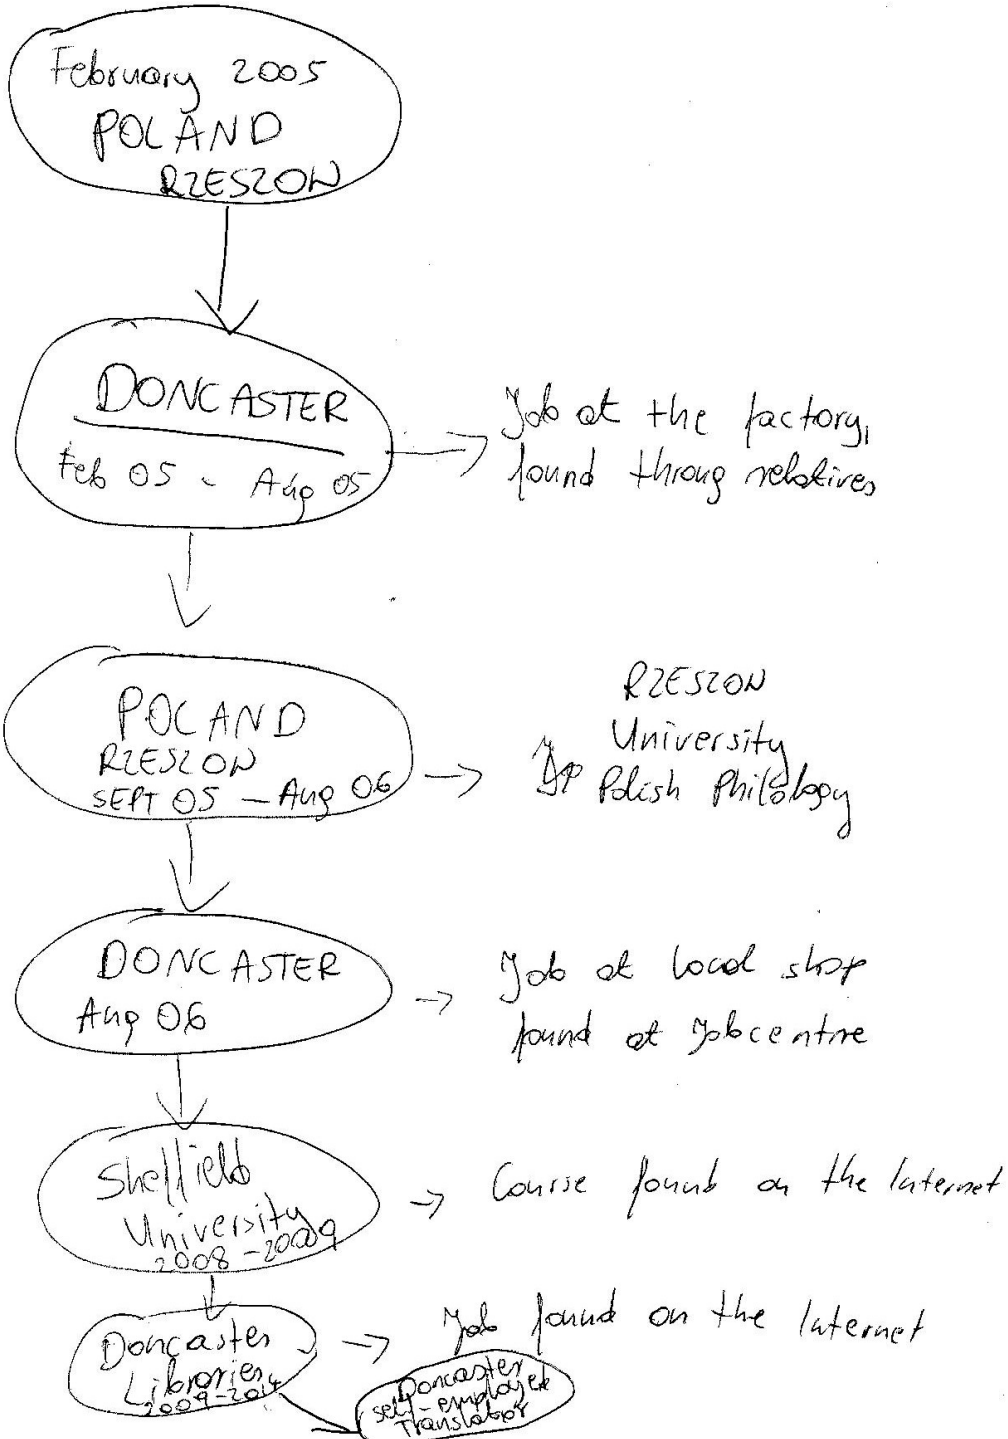 February 2005
POLAND
RZESZOW
DONCASTER
Feb 05 - Aug 05
Job at the factory,
found throug relatives
POLAND
RZESZOW
SEPT 05 - Aug 06
RZESZOW
University
Polish Philology
DONCASTER
Aug 06
Job at local shop
found at Jobcentre
Sheffield
University
2008-2009
Course found on the Internet
Doncaster
Libraries
2009-2014
Job found on the Internet
Doncaster
self-employed
Translator